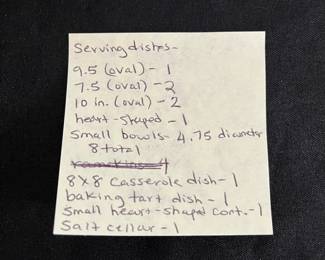 Serving dishes-
9.5 (oval) - 1
7.5 (oval) - 2
10 in. (oval) - 2
heart-shaped - 1
Small bowls - 4.75 diameter
8 total
ramekins-4
8x8 casserole dish - 1
baking tart dish - 1
Small heart-shaped cont. - 1
Salt cellar - 1